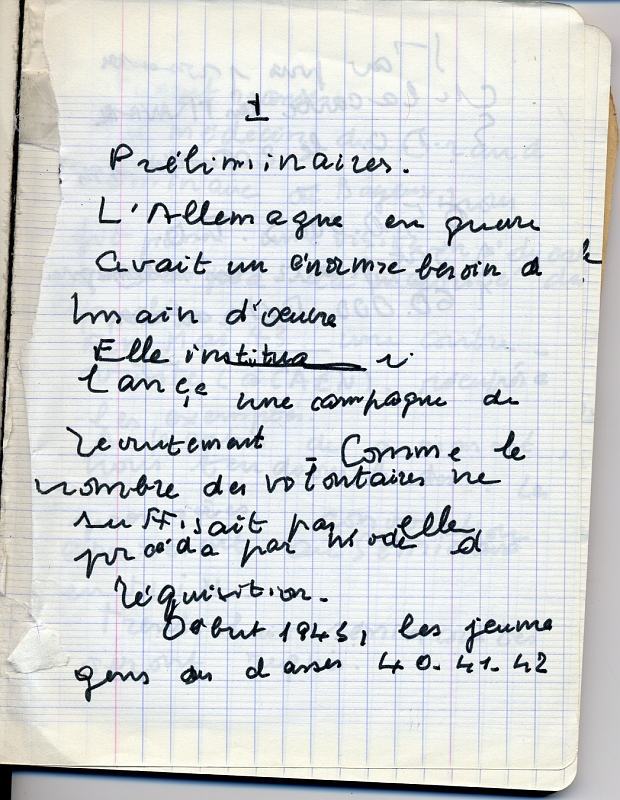 1
Préliminaires.
L'Allemagne en guerre
avait un énorme besoin de
main d'oeuvre
Elle institua
lança une campagne de
recrutement _ Comme le
nombre des volontaires ne
suffisait pas elle
procéda par mode d
réquisition.
Début 1943, les jeunes
gens des classes 40.41.42